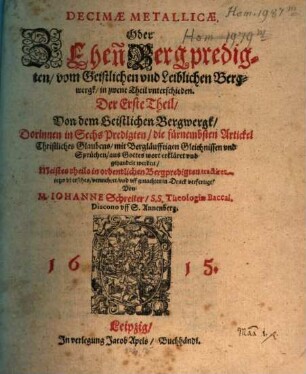 Hom. 1987 m
Hom. 1979 m
DECIMÆ METALLICÆ,
Oder
Zehen Bergpredig-
ten/ vom Geistlichen vnd Leiblichen Berg-
wergk/ in zweene Theil vnterschieden.
Der Erste Theil/
Von dem Geistlichen Bergwergk/
Dorinnen in Sechs Predigten/ die fürnembsten Artickel
Christliches Glaubens/ mit Bergläufftigen Gleichnissen vnd
Sprüchen/ aus Gottes wort erkläret vnd
gehandelt werden/
Meistes theils in ordentlichen Bergpredigten tractiret,
Von
M. IOHANNE Schreiter/ SS. Theologiæ Baccal.
Diacono vff S. Annenberg.
1615.
Leipzig/
In verlegung Jacob Apels/ Buchhändl.